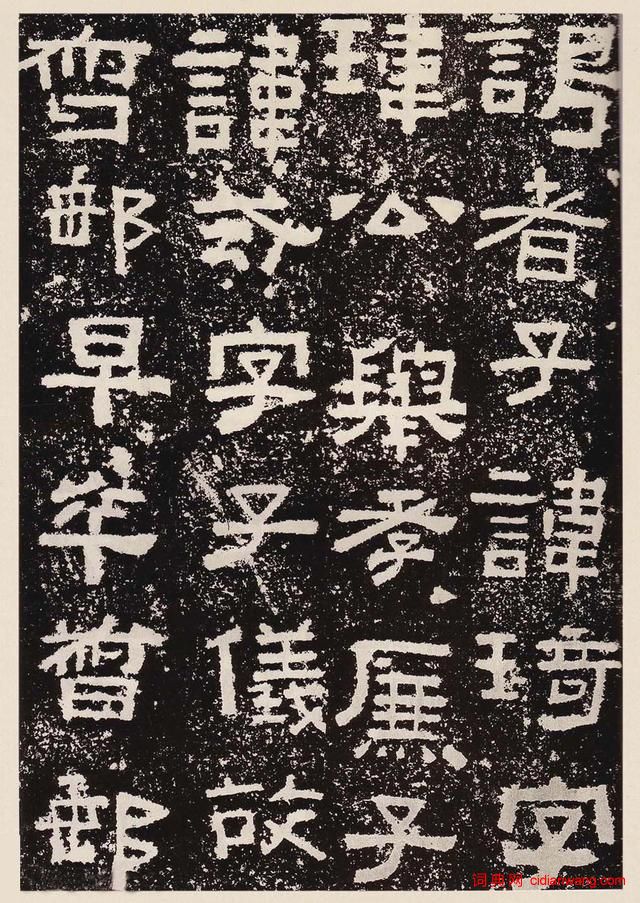 謁者子諱琦字
瑋公舉孝廉子
諱字子儀故
督郵早卒督郵
词典网 cidianwang.com